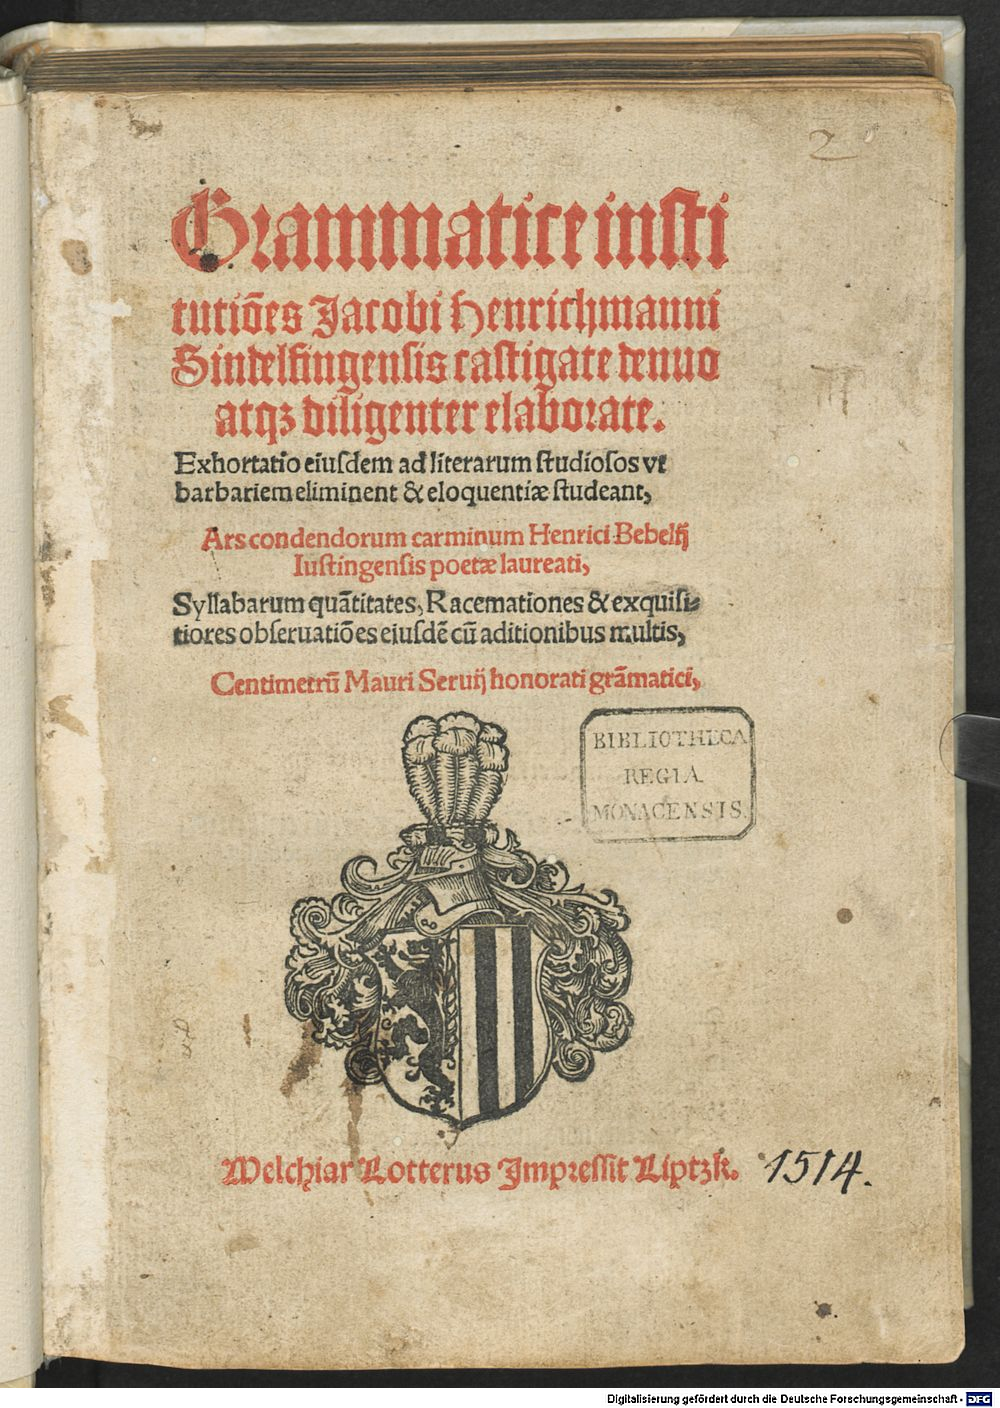 2
Grammatice insti
tutiões Jacobi Henrichmanni
Sindelfingensis castigate denuo
atqꝫ diligenter elaborate.
Exhortatio eiusdem ad literarum studiosos vt
barbariem eliminent & eloquentiæ studeant,
Ars condendorum carminum Henrici Bebelij
Iustingensis poetæ laureati,
Syllabarum quãtitates, Racemationes & exquisi-
tiores obseruatiões eiusdẽ cũ aditionibus multis,
Centimetrũ Mauri Seruij honorati grãmatici,
BIBLIOTHECA
REGIA
MONACENSIS.
Melchiar Lotterus Impressit Liptzk. 1514.
Digitalisierung gefördert durch die Deutsche Forschungsgemeinschaft - DFG